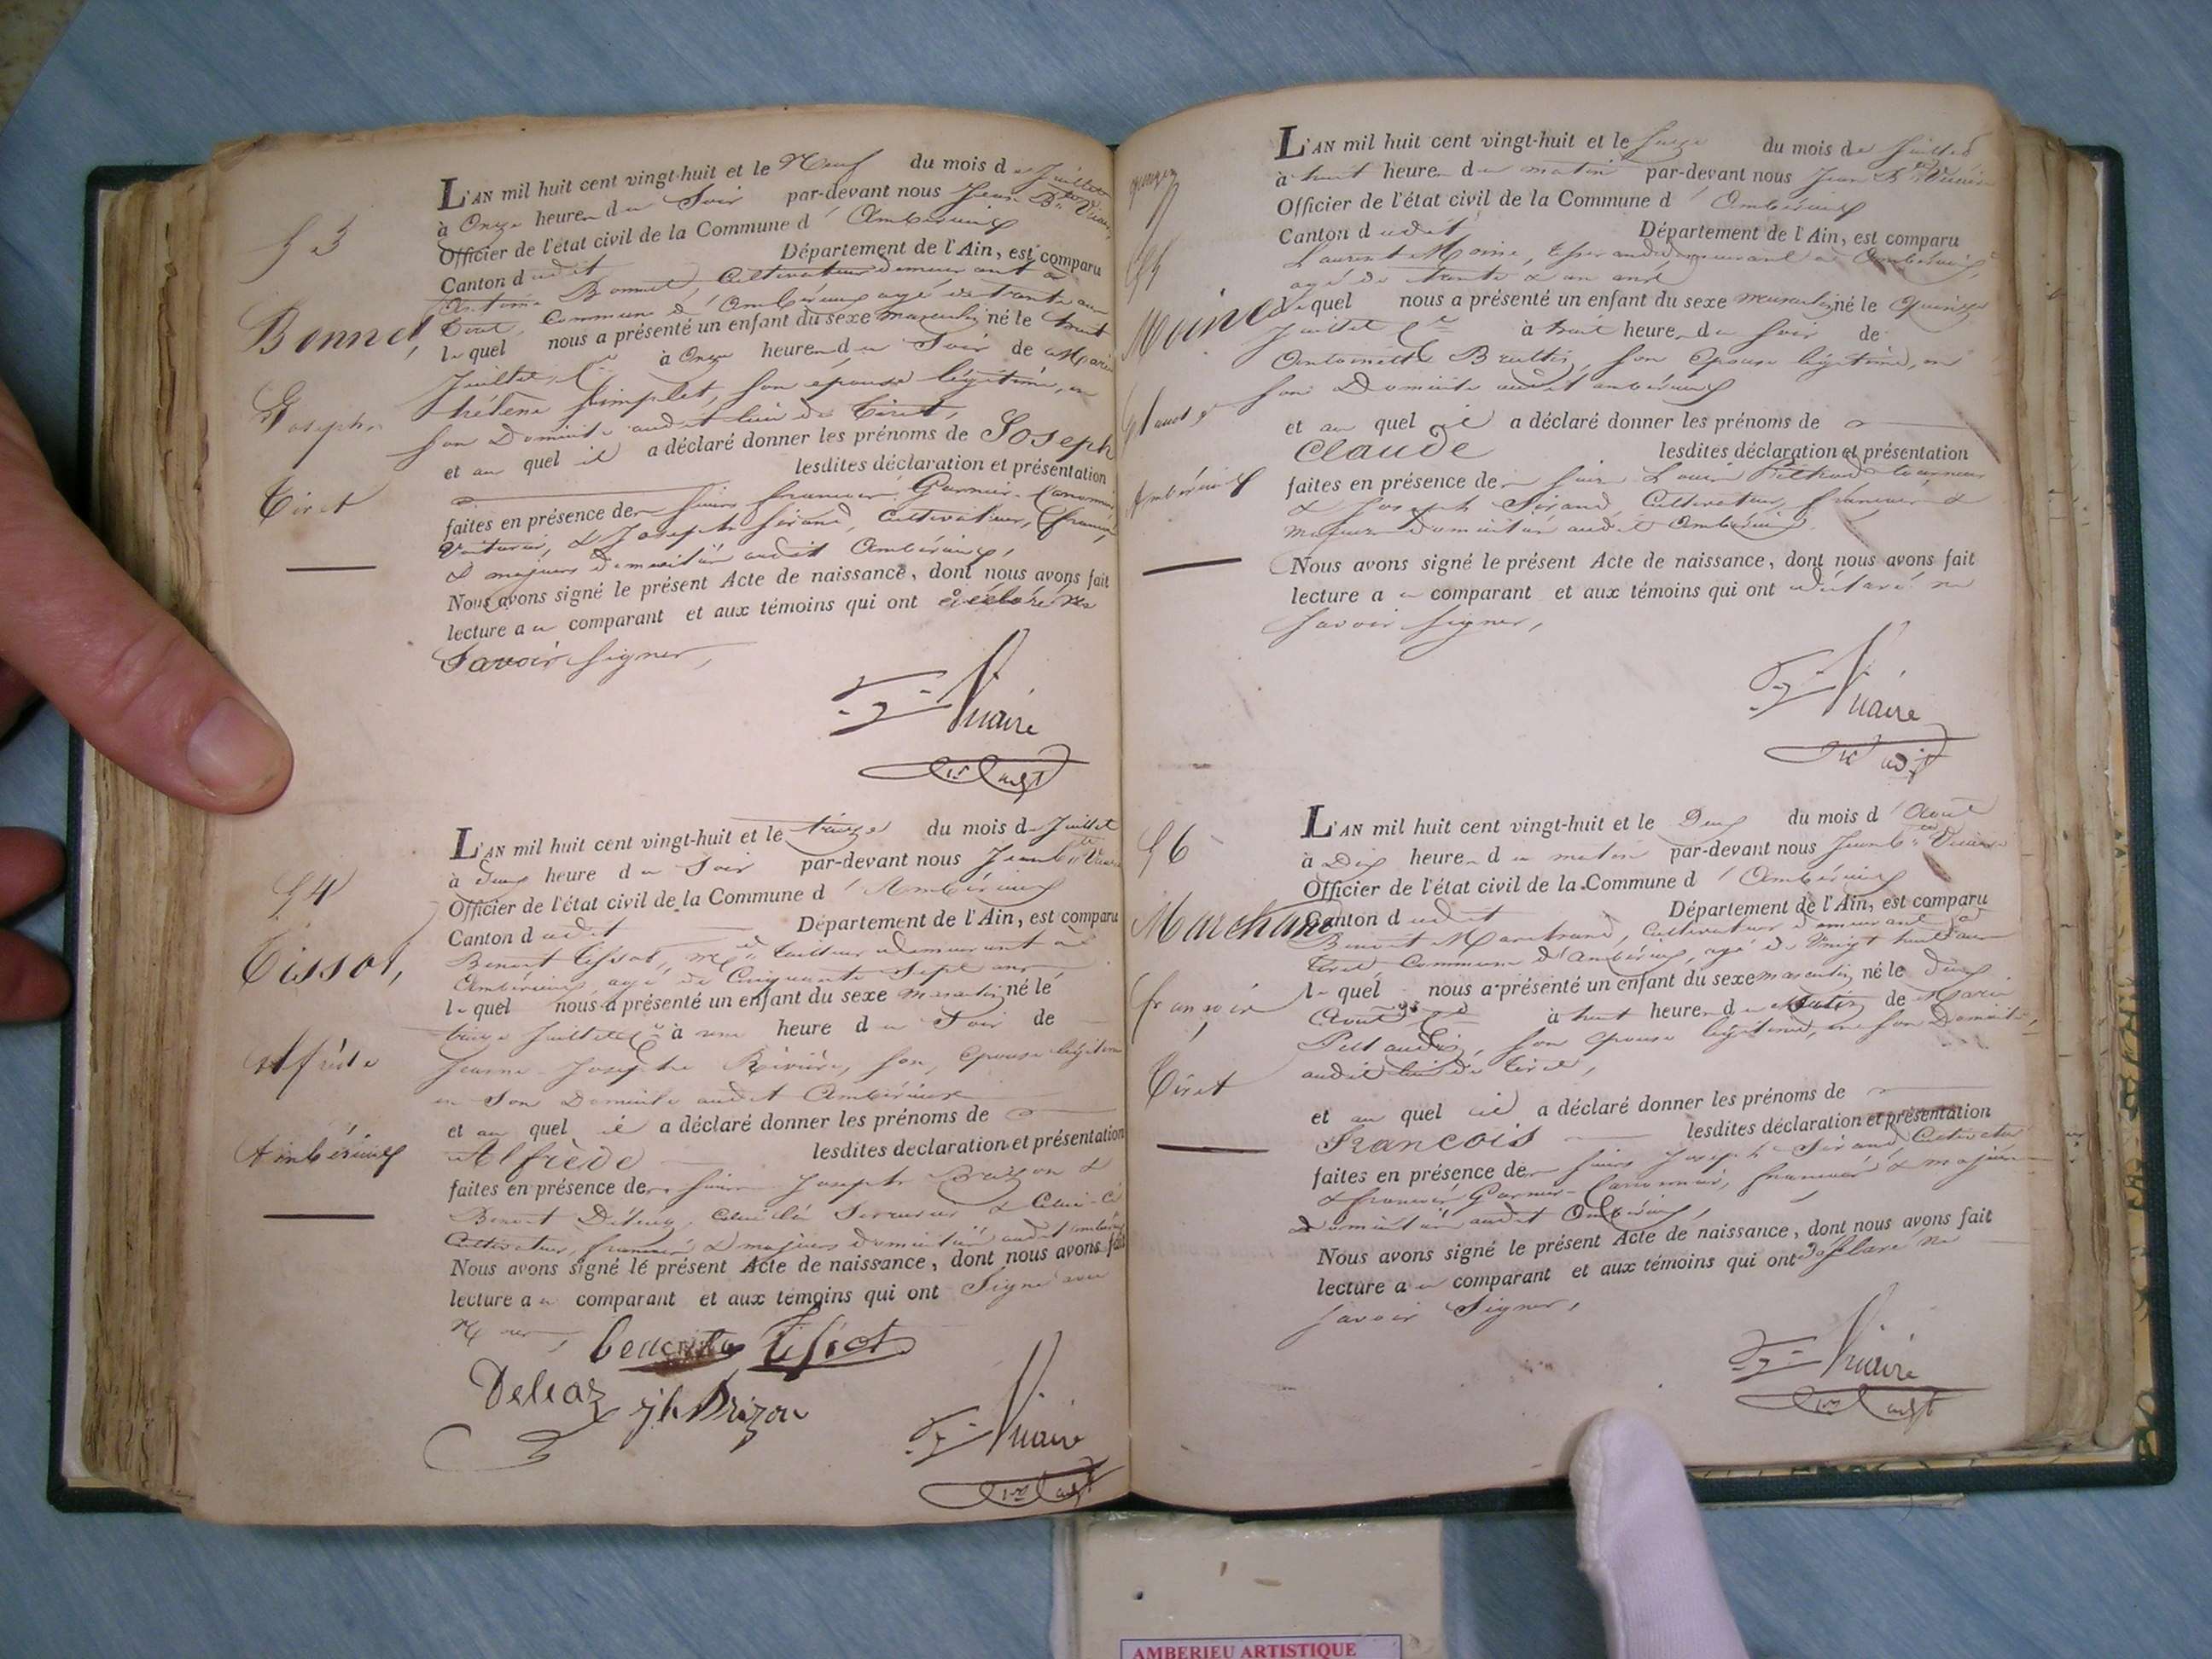 53
Bonnet,
Joseph
Tiret
L'AN mil huit cent vingt-huit et le Neuf du mois de Juillet
à Onze heures du Soir par-devant nous Jean Bte Vicaire
Officier de l'état civil de la Commune d'Ambérieux
Canton dudit Département de l'Ain, est comparu
Antoine Bonnet, Cultivateur demeurant à
Tiret, Commune d'Ambérieux agé de trente ans
lequel nous a présenté un enfant du sexe masculin né le huit
Juillet, à Onze heures du Soir de Marie
hélène Simplet, son epouse légitime, en
son Domicile audit lieu de Tiret,
et auquel il a déclaré donner les prénoms de Joseph
lesdites déclaration et présentation
faites en présence des sieurs françois Garnier-
Voiturier, & Joseph Sirand, Cultivateur, français
& majeurs domiciliés audit Ambérieux,
Nous avons signé le présent Acte de naissance, dont nous avons fait
lecture au comparant et aux témoins qui ont déclaré ne
Savoir signer,
Vicaire
54
Tissot,
Alfrède
Ambérieux
L'AN mil huit cent vingt-huit et le treize du mois de Juillet
à deux heure du Soir par-devant nous Jean Bte Vicaire
Officier de l'état civil de la Commune d'Ambérieux
Canton dudit Département de l'Ain, est comparu
Benoit Tissot, tailleur demeurant à
Ambérieux, agé de Cinquante Sept ans
lequel nous a présenté un enfant du sexe masculin né le
treize Juillet à une heure du Soir de
Jeanne Josephe Rivière, son Epouse légitime
en Son Domicile audit Ambérieux
et auquel il a déclaré donner les prénoms de
Alfrède lesdites declaration et présentation
faites en présence des sieurs Joseph &
Benoit celui là Serrurier & Celui-Ci
Cultivateur, français & majeurs domiciliés audit ambérieux
Nous avons signé le présent Acte de naissance, dont nous avons fait
lecture au comparant et aux témoins qui ont Signé avec
Nous,
benoit tissot
Deleaz
Vicaire
55
Moine
Claude
Ambérieux
L'AN mil huit cent vingt-huit et le Seize du mois de Juillet
à huit heures du matin par-devant nous Jean Bte Vicaire
Officier de l'état civil de la Commune d'Ambérieux
Canton dudit Département de l'Ain, est comparu
Laurent Moine, tisserand demeurant à Ambérieux,
agé de trente & un ans
lequel nous a présenté un enfant du sexe masculin né le Quinze
Juillet à huit heures du Soir de
Antoinette son Epouse légitime, en
son Domicile audit ambérieux
et auquel il a déclaré donner les prénoms de
Claude lesdites déclaration et présentation
faites en présence des sieurs Louis
& Joseph Sirand, Cultivateur, français &
majeurs domiciliés audit Ambérieux.
Nous avons signé le présent Acte de naissance, dont nous avons fait
lecture au comparant et aux témoins qui ont déclaré ne
savoir signer,
Vicaire
56
Marchand
françois,
Tiret
L'AN mil huit cent vingt-huit et le Deux du mois d'Aout
à Dix heures du matin par-devant nous Jean Bte Vicaire
Officier de l'état civil de la Commune d'Ambérieux
Canton dudit Département de l'Ain, est comparu
Benoit Marchand, Cultivateur demeurant à
Tiret Commune d'Ambérieux, agé de Vingt huit ans
lequel nous a présenté un enfant du sexe masculin né le deux
Aout à huit heures du Matin de Marie
son Epouse légitime, en son Domicile,
audit lieu de Tiret,
et auquel il a déclaré donner les prénoms de
Francois lesdites déclaration et présentation
faites en présence des sieurs Joseph Sirand, Cultivateur
& françois Garnier- français & majeurs
domiciliés audit Ambérieux,
Nous avons signé le présent Acte de naissance, dont nous avons fait
lecture au comparant et aux témoins qui ont déclaré ne
savoir Signer,
Vicaire
AMBERIEU ARTISTIQUE